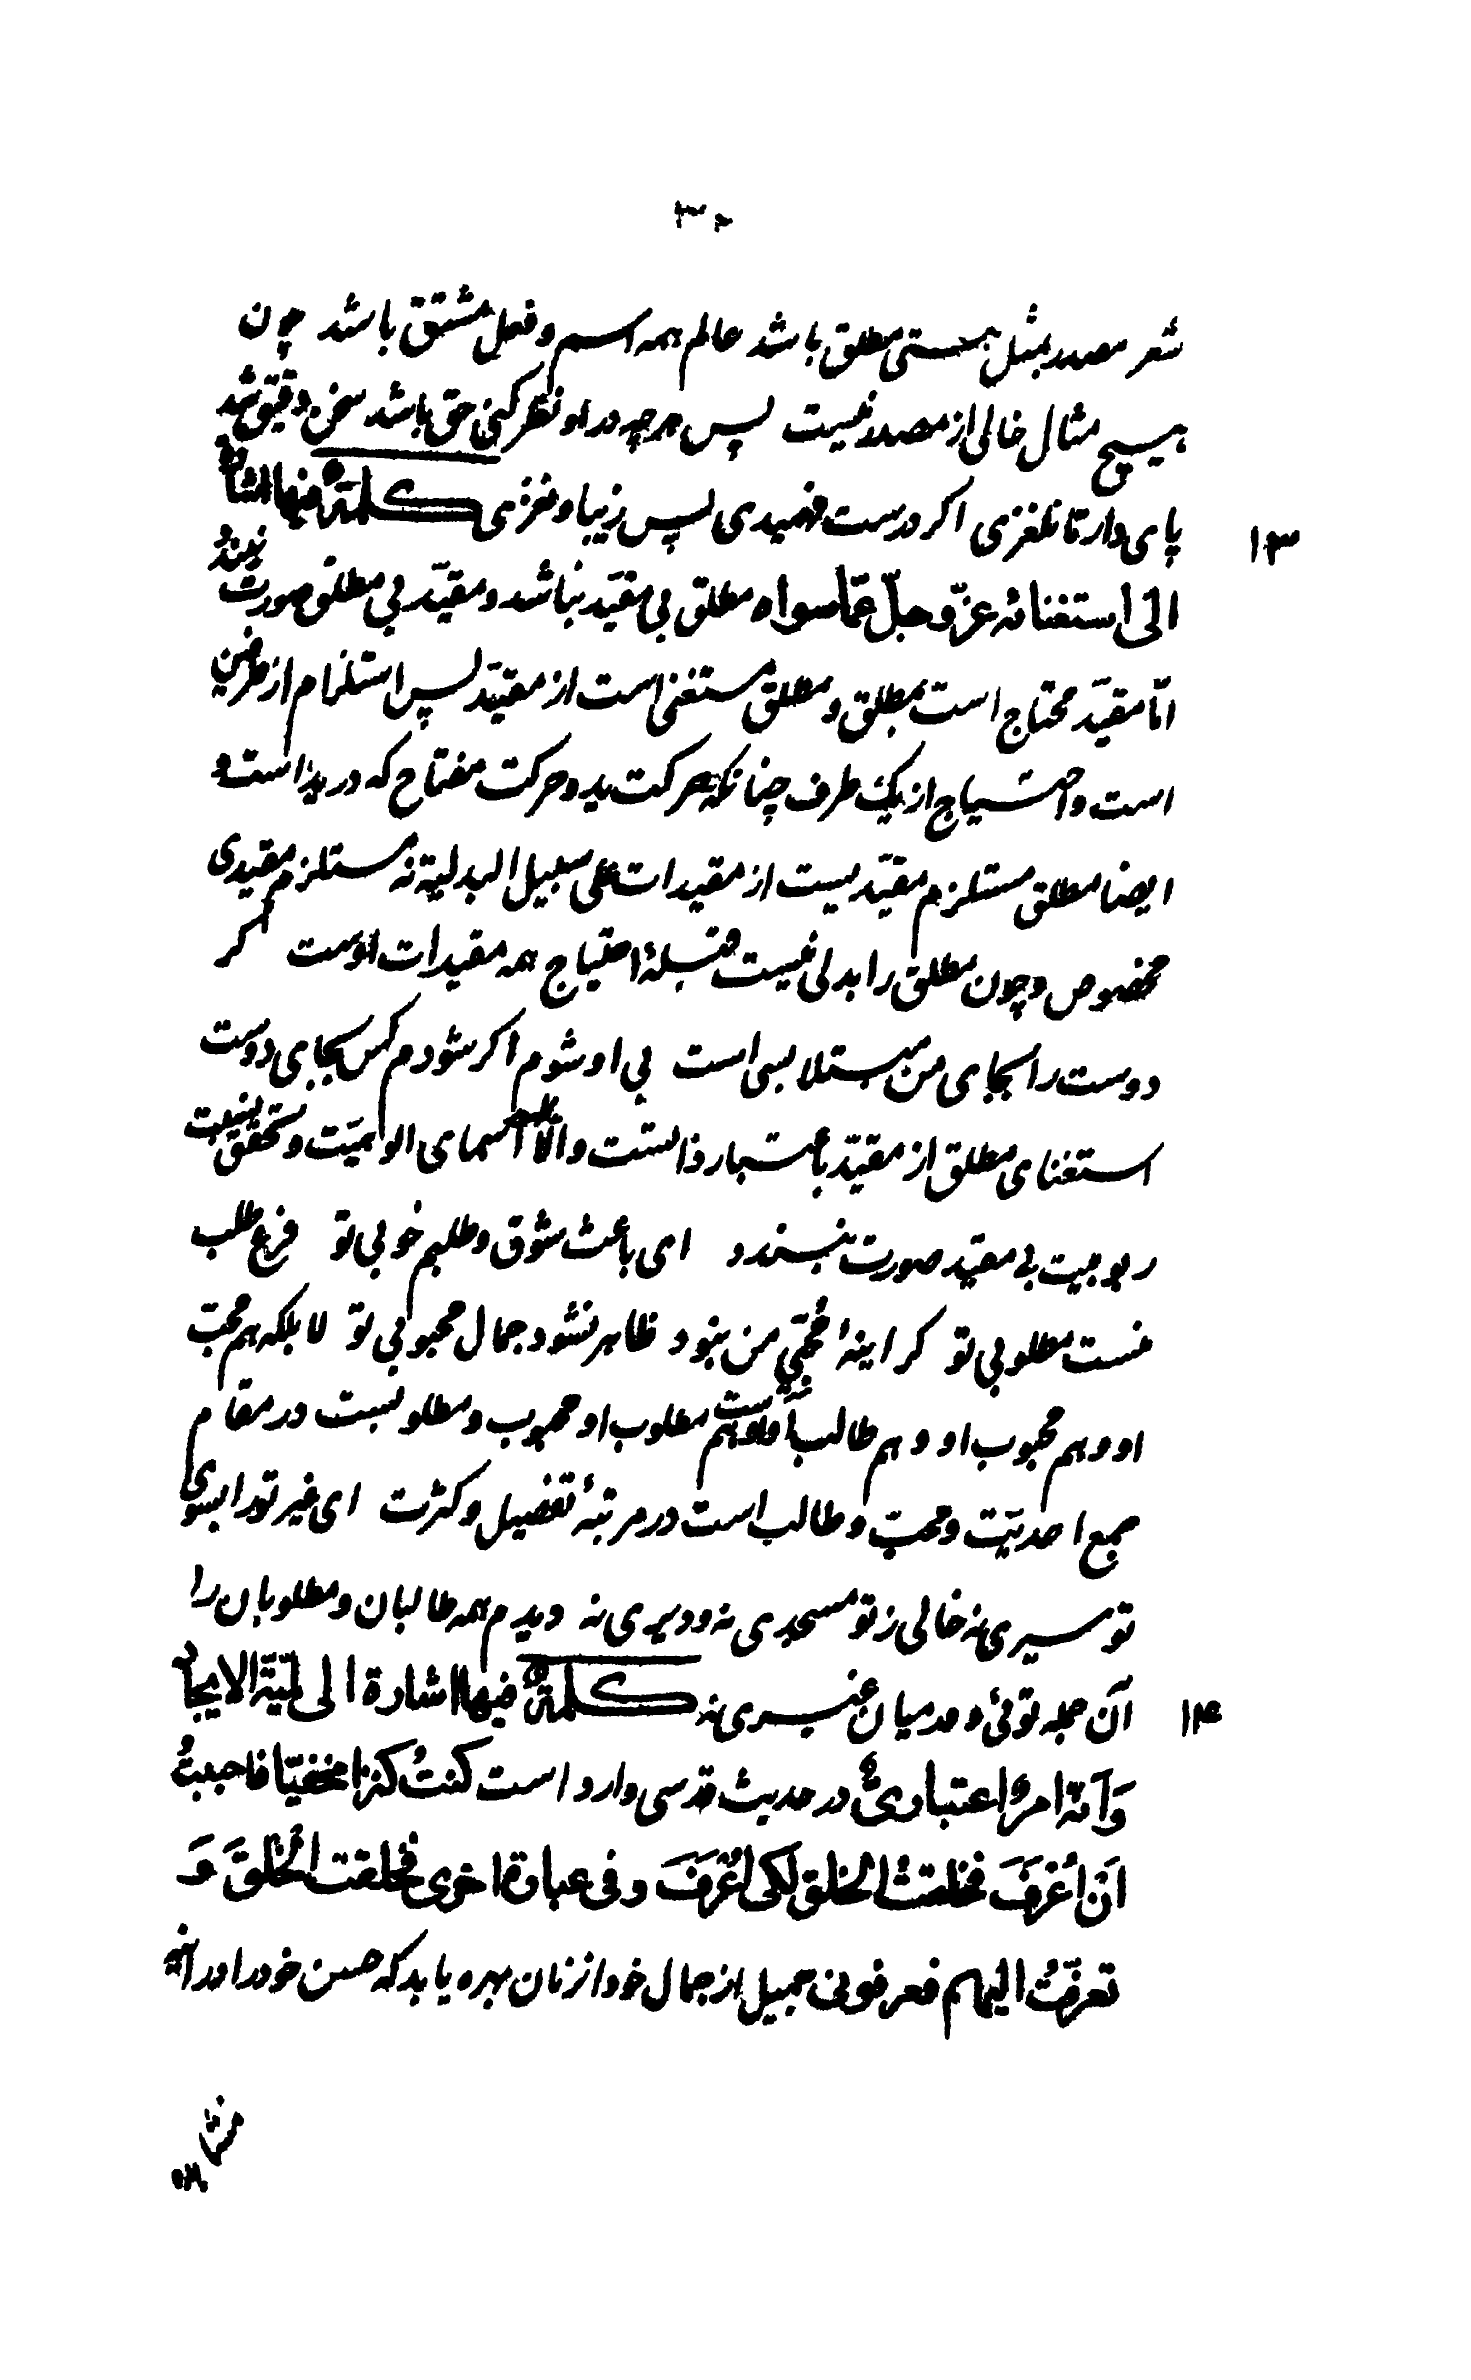 ۳۰
شعر مصدر بمثل هستی مطلق باشد عالم همه اسم و فعل مشتق باشد چون
هیچ مثال خالی از مصدر نیست پس هرچه در او نظر کنی حق باشد سخن دقیق شد
پای دار تا نلغزی اکر درست فهمیدی پس زیبا و نغزی کلمةٌ فیها اشارة
۱۳
الی استغنائه عزّ و جلّ عمّا سواه مطلق بی مقیّد نباشد و مقیّد بی مطلق صورت نبندد
امّا مقیّد محتاج است بمطلق و مطلق مستغنی است از مقیّد پس استلزام از طرفین
است و احتیاج از یک طرف چنانکه حرکت ید و حرکت مفتاح که در ید است و
ایضا مطلق مستلزم مقیّدیست از مقیدات علی سبیل البدلیة نه مستلزم مقیدی
مخصوص و چون مطلق را بدلی نیست قبلهٔ احتیاج همه مقیدات اوست کر
دوست را بجای من مبتلا بسی است بی او شوم اکر شودم کس بجای دوست
استغنای مطلق از مقیّد باعتبار ذاتست و الّا اسمای الوهیّت و تحقق نسبت
ربوبیت بی مقیّد صورت نبندد ای باعث شوق و طلبم خوبی تو فرع طلب
منست مطلوبی تو کر اینهٔ محبّی من نبود ظاهر نشود جمال محبوبی تو لا بلکه هم محبّ
او و هم محبوب او و هم طالب اوست و هم مطلوب او محبوب و مطلوبست در مقام
جمع احدیّت و محبّ و طالب است در مرتبهٔ تفصیل و کثرت ای غیر تو را بسوی
تو سیری نه خالی ز تو مسجدی نه و دیری نه دیدم همه طالبان و مطلوبان را
آن جمله توئی و در میان غیری نه کلمةٌ فیها اشارة الی لمیّة الایجاد
۱۴
وَ اَنّه امرٌ اعتباریٌ در حدیث قدسی وارد است کنتُ کنزا مخفیّا فاحببتُ
اَنْ اُعْرَفَ فخلقتُ الخلق لکی اُعْرَفَ و فی عبارة اخری فخلقت الخلقَ وَ
تعرفتُ الیهم فعرفونی جمیل از جمال خود از زمان بهره یابد که حسن خود را در اینه